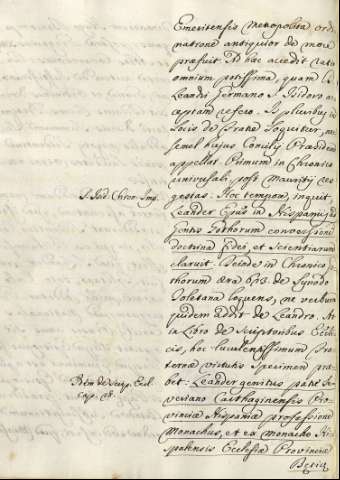 Emeritensis Metropolita ordi
natione antiquior de more
præfuit. Ad hac accedit ratio
omnium potissima, quam S.
Leandri Germano S. Isidoro ac
ceptam refero. Is pluribus in
locis de Fratre loquitur, nec
semel hujus Concilij Præsidem
appellat. Primum in Chronico
universali, post Mauritij res
gestas: Hoc tempore, inquit
S. Isid. Chron. Imp.
Leander Epũs in Hispanijs ad
Gentis Gothorum conversionem
doctrina fidei, et Scientiarum
claruit. Deinde in Chronico Go
thorum æra 623. de Synodo
Toletana loquens, ne verbum
quidem addit de Leandro. At
in Libro de Scriptoribus Eccle
cis, hoc luculentissimum Fra
ternæ virtutis Specimen præ
Idem de Scrip. Eccl.
cap. 28.
bet: Leander genitus patre Se
veriano Carthaginensis Pro
vinciæ Hispaniæ professione
Monachus, et ex monacho His
palensis Ecclesiæ Provinciæ
Bætiæ